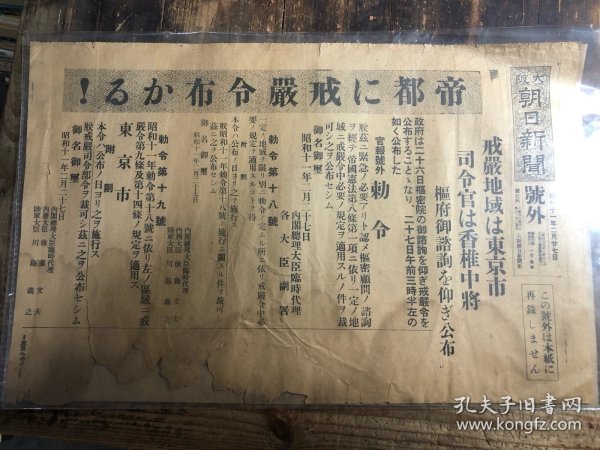 帝都に戒嚴令布かる!
大阪
朝日新聞
號外
この號外は本紙に
再錄しません
戒嚴地域は東京市
司令官は香椎中將
樞府御諮詢を仰ぎ公布
政府は二十六日樞密院の御諮詢を仰ぎ戒嚴令を
公布することゝなり、二十七日午前三時半左の
如く公布した
官報號外
勅令
朕茲ニ緊急ノ必要アリト認メ樞密顧問ノ諮詢
ヲ經テ帝國憲法第八條第一項ニ依リ一定ノ地
域ニ戒嚴令中必要ノ規定ヲ適用スルノ件ヲ裁
可シ之ヲ公布セシム
御名御璽
昭和十一年二月二十七日
內閣總理大臣臨時代理
各大臣副署
勅令第十八號
一定ノ地域ヲ限リ別ニ勅令ノ定ムル所ニ依リ戒嚴令中必
要ノ規定ヲ適用スルコトヲ得
附則
本令ハ公布ノ日ヨリ之ヲ施行ス
朕昭和十一年勅令第十八號ノ施行ニ關スル件ヲ裁可シ
茲ニ之ヲ公布セシム
御名御璽
昭和十一年二月二十七日
內閣總理大臣臨時代理
內務大臣 後藤文夫
陸軍大臣 川島義之
勅令第十九號
昭和十一年勅令第十八號ニ依リ左ノ區域ニ戒
嚴令第九條及第十四條ノ規定ヲ適用ス
東京市
附則
本令ハ公布ノ日ヨリ之ヲ施行ス
朕戒嚴司令部令ヲ裁可シ茲ニ之ヲ公布セシム
御名御璽
昭和十一年二月二十七日
內閣總理大臣臨時代理
內務大臣 後藤文夫
陸軍大臣 川島義之
孔夫子旧书网
book.kongfz.com